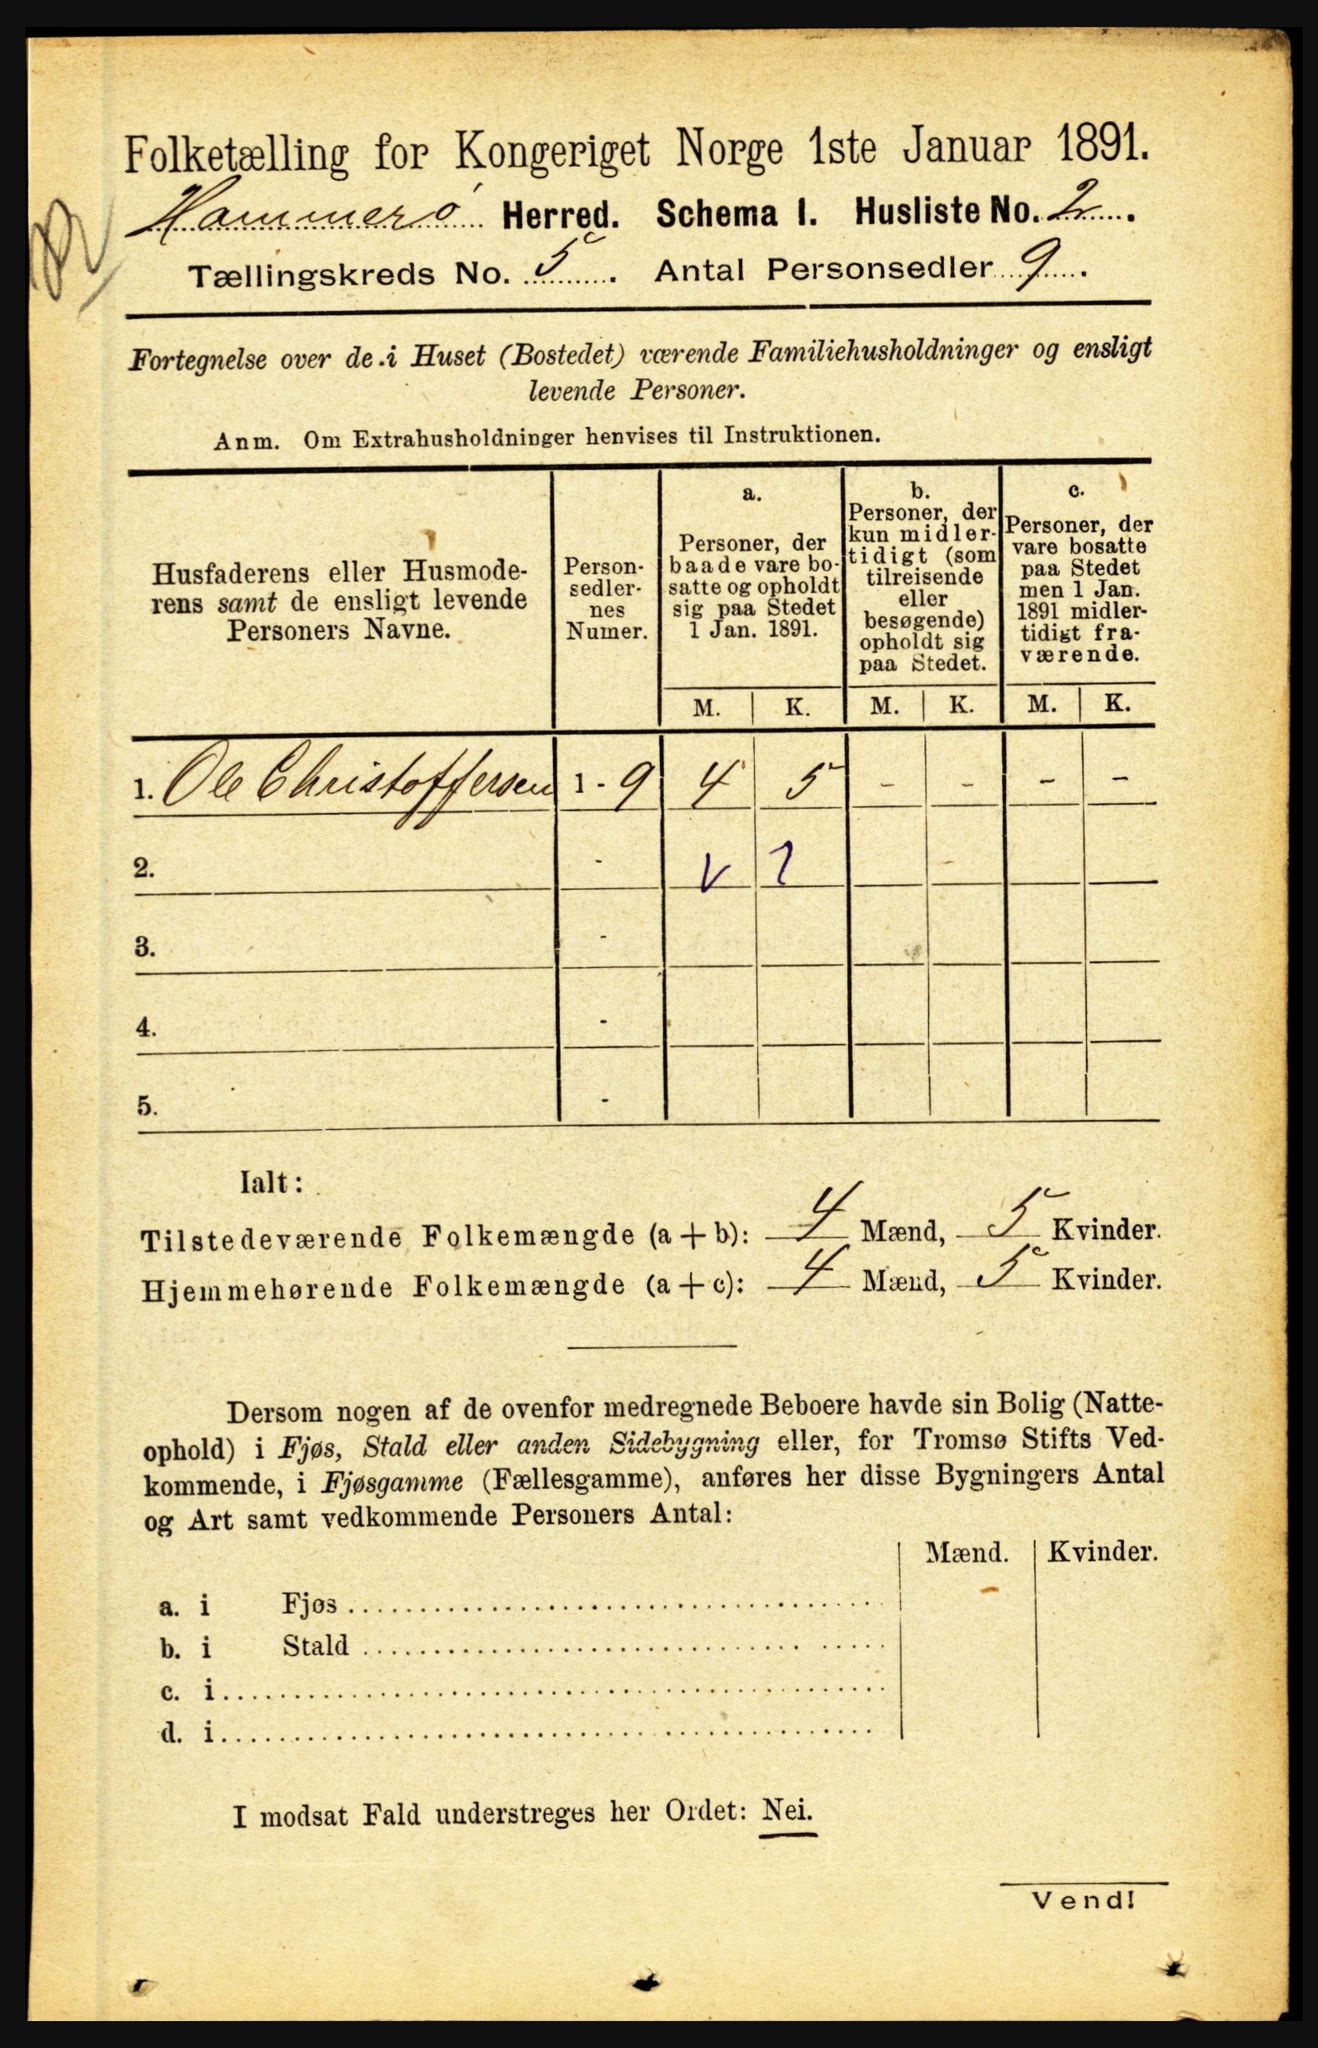 Folketælling for Kongeriget Norge 1ste Januar 1891.
Hammerø Herred. Schema I. Husliste No. 2.
Tællingskreds No. 5. Antal Personsedler 9.
Fortegnelse over de i Huset (Bostedet) værende Familiehusholdninger og ensligt
levende Personer.
Anm. Om Extrahusholdninger henvises til Instruktionen.
Husfaderens eller Husmode-
rens samt de ensligt levende
Personers Navne.
Person-
sedler-
nes
Numer.
a.
Personer, der
baade vare bo-
satte og opholdt
sig paa Stedet
1 Jan. 1891.
b.
Personer, der
kun midler-
tidigt (som
tilreisende
eller
besøgende)
opholdt sig
paa Stedet.
c.
Personer, der
vare bosatte
paa Stedet
men 1 Jan.
1891 midler-
tidigt fra-
værende.
M. K. M. K. M. K.
1. Ole Christoffersen 1 - 9 4 5 - - - -
2. -
3. -
4. -
5. -
Ialt:
Tilstedeværende Folkemængde (a + b): 4 Mænd, 5 Kvinder.
Hjemmehørende Folkemængde (a + c): 4 Mænd, 5 Kvinder.
Dersom nogen af de ovenfor medregnede Beboere havde sin Bolig (Natte-
ophold) i Fjøs, Stald eller anden Sidebygning eller, for Tromsø Stifts Ved-
kommende, i Fjøsgamme (Fællesgamme), anføres her disse Bygningers Antal
og Art samt vedkommende Personers Antal:
Mænd. Kvinder.
a. i Fjøs
b. i Stald
c. i
d. i
I modsat Fald understreges her Ordet: Nei.
Vend!